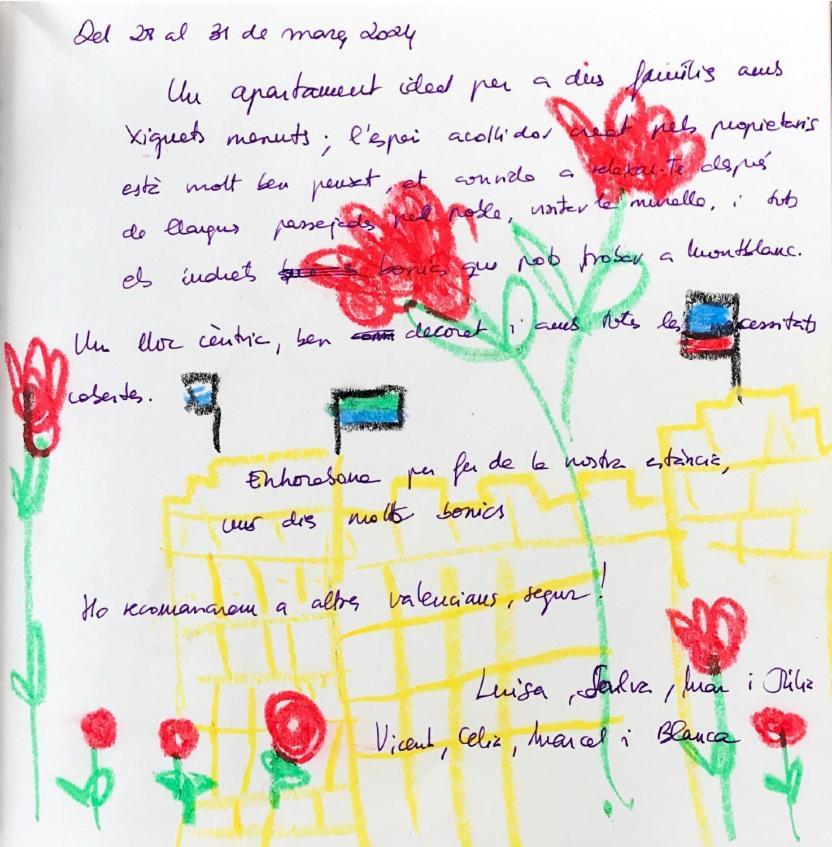 Del 28 al 31 de març 2024
Un apartament ideal per a dies familiis amb
xiquets menuts; l'espai acollidor creat pels propietaris
està molt ben pensat, et convida a relaxar-te després
de llargues passejades pel poble, visitar la muralla, i tots
els indrets bonics que pots trobar a Montblanc.
Un lloc cèntric, ben decorat i amb totes les necessitats
cobertes.
Enhorabona per fer de la nostra estància,
uns dies molts bonics
Ho recomanarem a altres valencians, segur!
Luisa, Salva, Mar i
Vicent, Celia, Marcel i Blanca